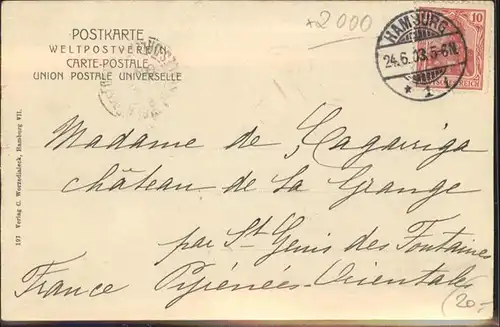 +2000
POSTKARTE
WELTPOSTVEREIN
CARTE-POSTALE
UNION POSTALE UNIVERSELLE
HAMBURG
24.6.03.5-6N.
* 1
10
REICH
Madame de Lagarriga
château de La Grange
par St Genis des Fontaines
France Pyrénées-Orientales
20.-
197 Verlag C. Worzedialeck, Hamburg VII.